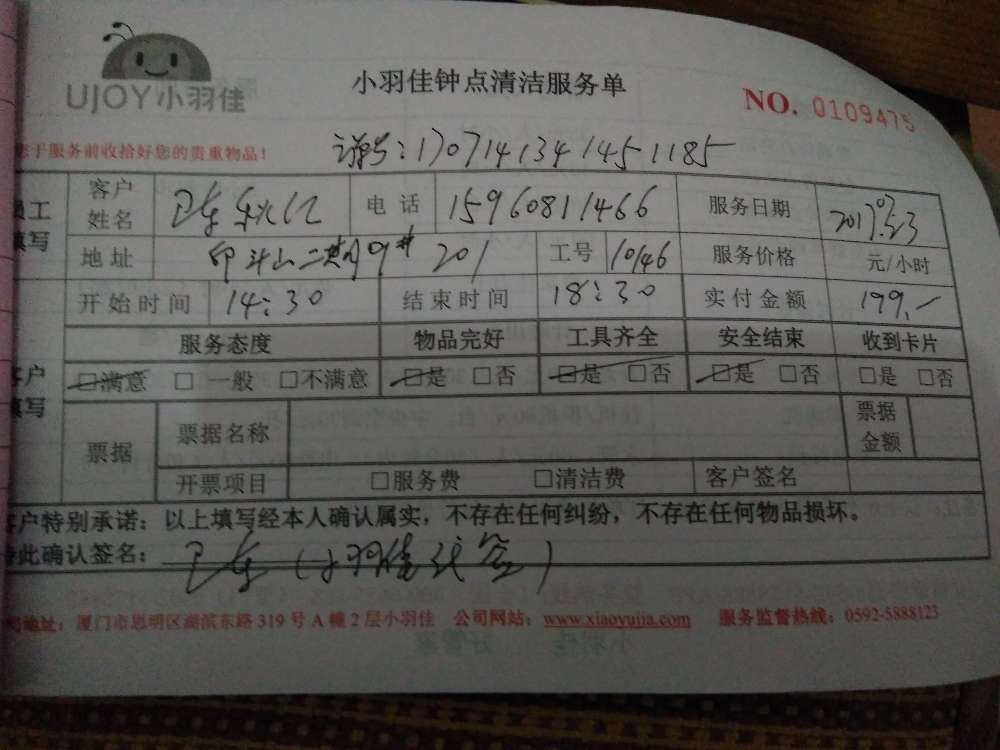 UJOY小羽佳
小羽佳钟点清洁服务单
NO. 0109475
您于服务前收拾好您的贵重物品！
单号：1707141341451185
员工填写
客户姓名 电话 15960811466 服务日期 2017.07.23
地址 印斗山二期9# 201 工号 10146 服务价格 元/小时
开始时间 14:30 结束时间 18:30 实付金额 199.-
服务态度 物品完好 工具齐全 安全结束 收到卡片
客户填写
□满意 □一般 □不满意 □是 □否 □是 □否 □是 □否 □是 □否
票据 票据名称 票据金额
开票项目 □服务费 □清洁费 客户签名
客户特别承诺：以上填写经本人确认属实，不存在任何纠纷，不存在任何物品损坏。
特此确认签名： (小羽佳代签)
地址：厦门市思明区湖滨东路319号A幢2层小羽佳 公司网站：www.xiaoyujia.com 服务监督热线：0592-5888123